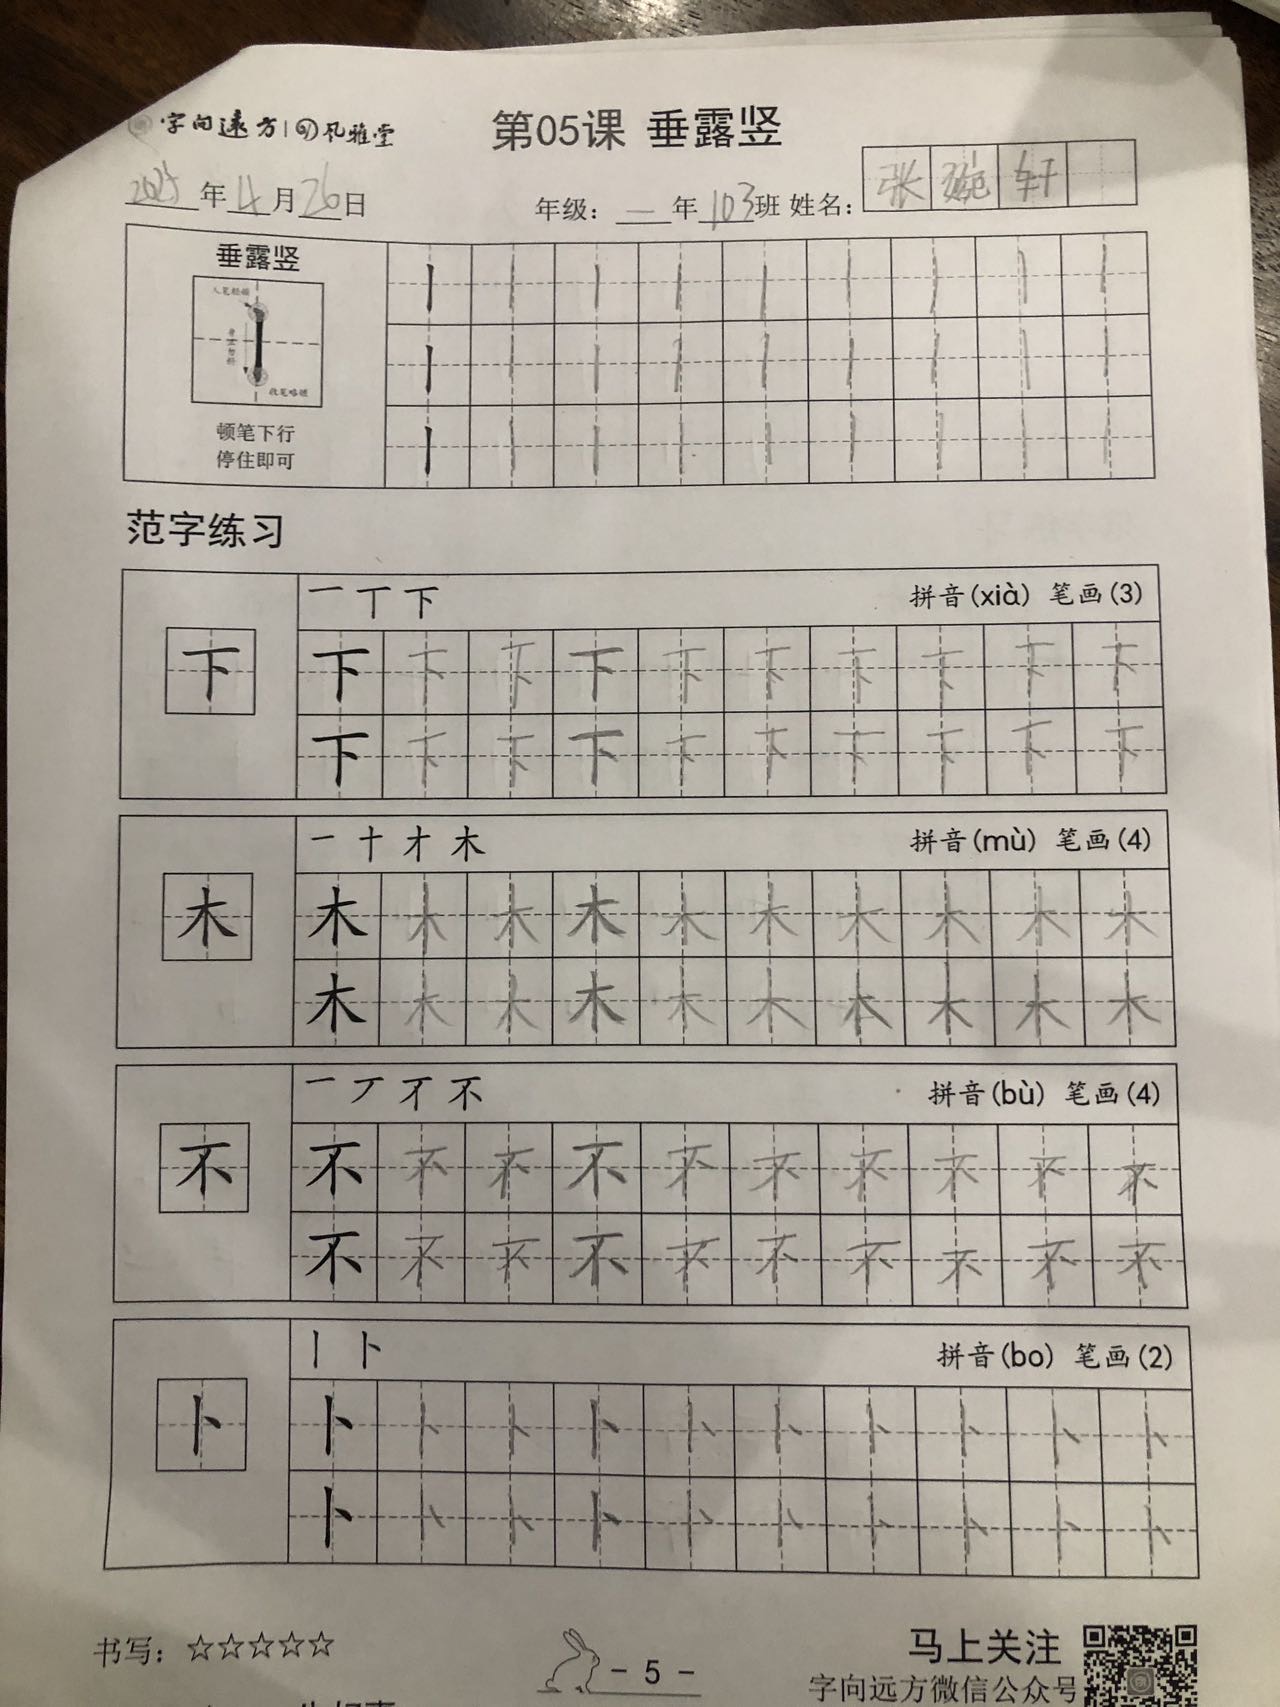 字向远方 风雅堂
第05课 垂露竖
2025年4月26日 年级：一年103班 姓名：张琬轩
垂露竖
入笔轻顿
收笔略顿
顿笔下行
停住即可
范字练习
一 丅 下 拼音(xià) 笔画(3)
下 下 下 下 下 下 下 下 下 下 下
下 下 下 下 下 下 下 下 下 下
一 十 才 木 拼音(mù) 笔画(4)
木 木 木 木 木 木 木 木 木 木 木
木 木 木 木 木 木 木 木 木 木
一 丆 不 拼音(bù) 笔画(4)
不 不 不 不 不 不 不 不 不 不 不
不 不 不 不 不 不 不 不 不 不
丨 卜 拼音(bo) 笔画(2)
卜 卜 卜 卜 卜 卜 卜 卜 卜 卜 卜
卜 卜 卜 卜 卜 卜 卜 卜 卜 卜
书写：☆☆☆☆☆
- 5 -
马上关注
字向远方微信公众号